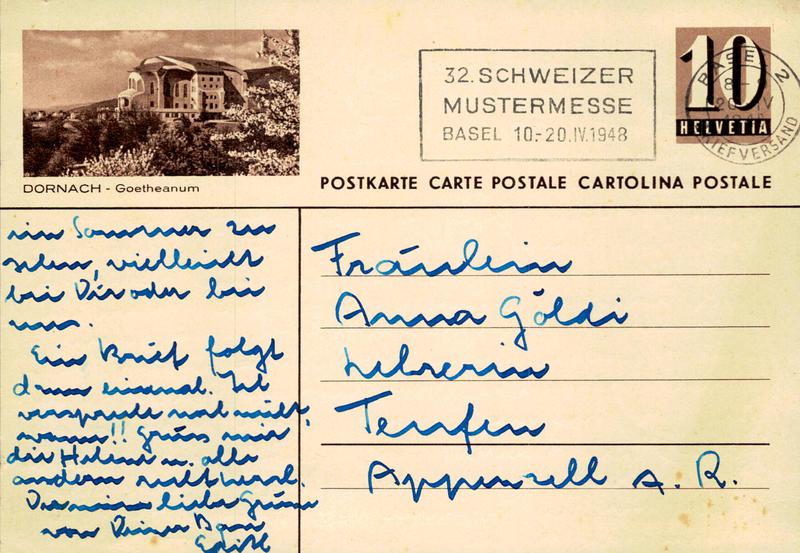 32. SCHWEIZER
MUSTERMESSE
BASEL 10.-20.IV.1948
BASEL 2
BRIEFVERSAND
10
HELVETIA
DORNACH - Goetheanum
POSTKARTE CARTE POSTALE CARTOLINA POSTALE
im Sommer zu
sehen, vielleicht
bei Dir oder bei
uns.
Ein Brief folgt
dann einmal. Ich
verspreche noch nicht,
wann!! Grüss mir
die Helene u. alle
andern recht herzl.
liebe Grüsse
von Deiner
Edith
Fräulein
Anna Göldi
Lehrerin
Teufen
Appenzell A. R.